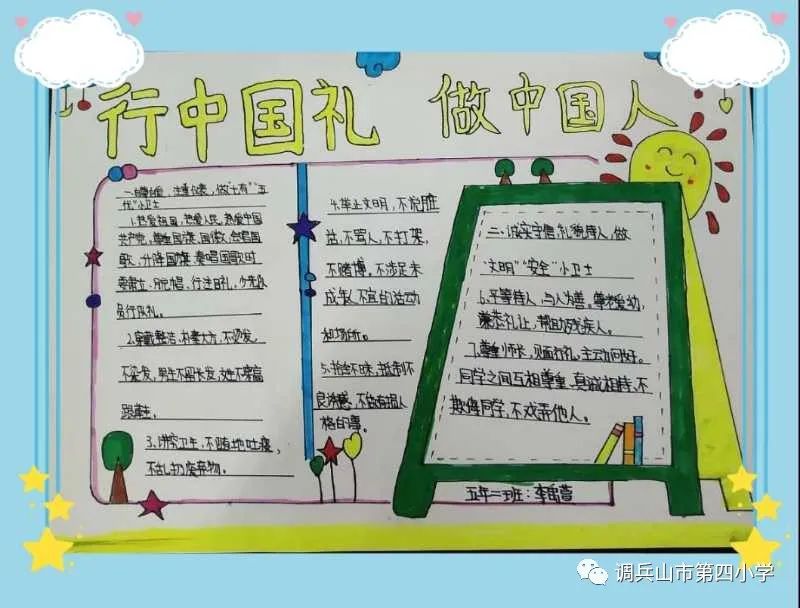 行中国礼 做中国人
一.自尊自爱,注重仪表,做"七有""五
代"小卫士
1.热爱祖国,热爱人民,热爱中国
共产党,尊重国旗、国徽,会唱国
歌,升降国旗、奏唱国歌时
要肃立、脱帽、行注目礼,少先队
员行队礼。
2.穿戴整洁、朴素大方,不烫发,
不染发,男生不留长发,女生不穿高
跟鞋。
3.讲究卫生,不随地吐痰,
不乱扔废弃物。
4.举止文明,不说脏
话,不骂人,不打架,
不赌博,不涉足未
成年人不宜的活动
和场所。
5.拾金不昧,抵制不
良诱惑,不做有损人
格的事。
二.诚实守信,礼貌待人,做
"文明""安全"小卫士
6.平等待人,与人为善。尊老爱幼,
谦恭礼让,帮助残疾人。
7.尊重师长,见面行礼。主动问好。
同学之间互相尊重、真诚相待、不
欺侮同学,不戏弄他人。
五年二班:李
调兵山市第四小学